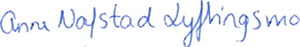 Anne Nafstad Lyftingsmo